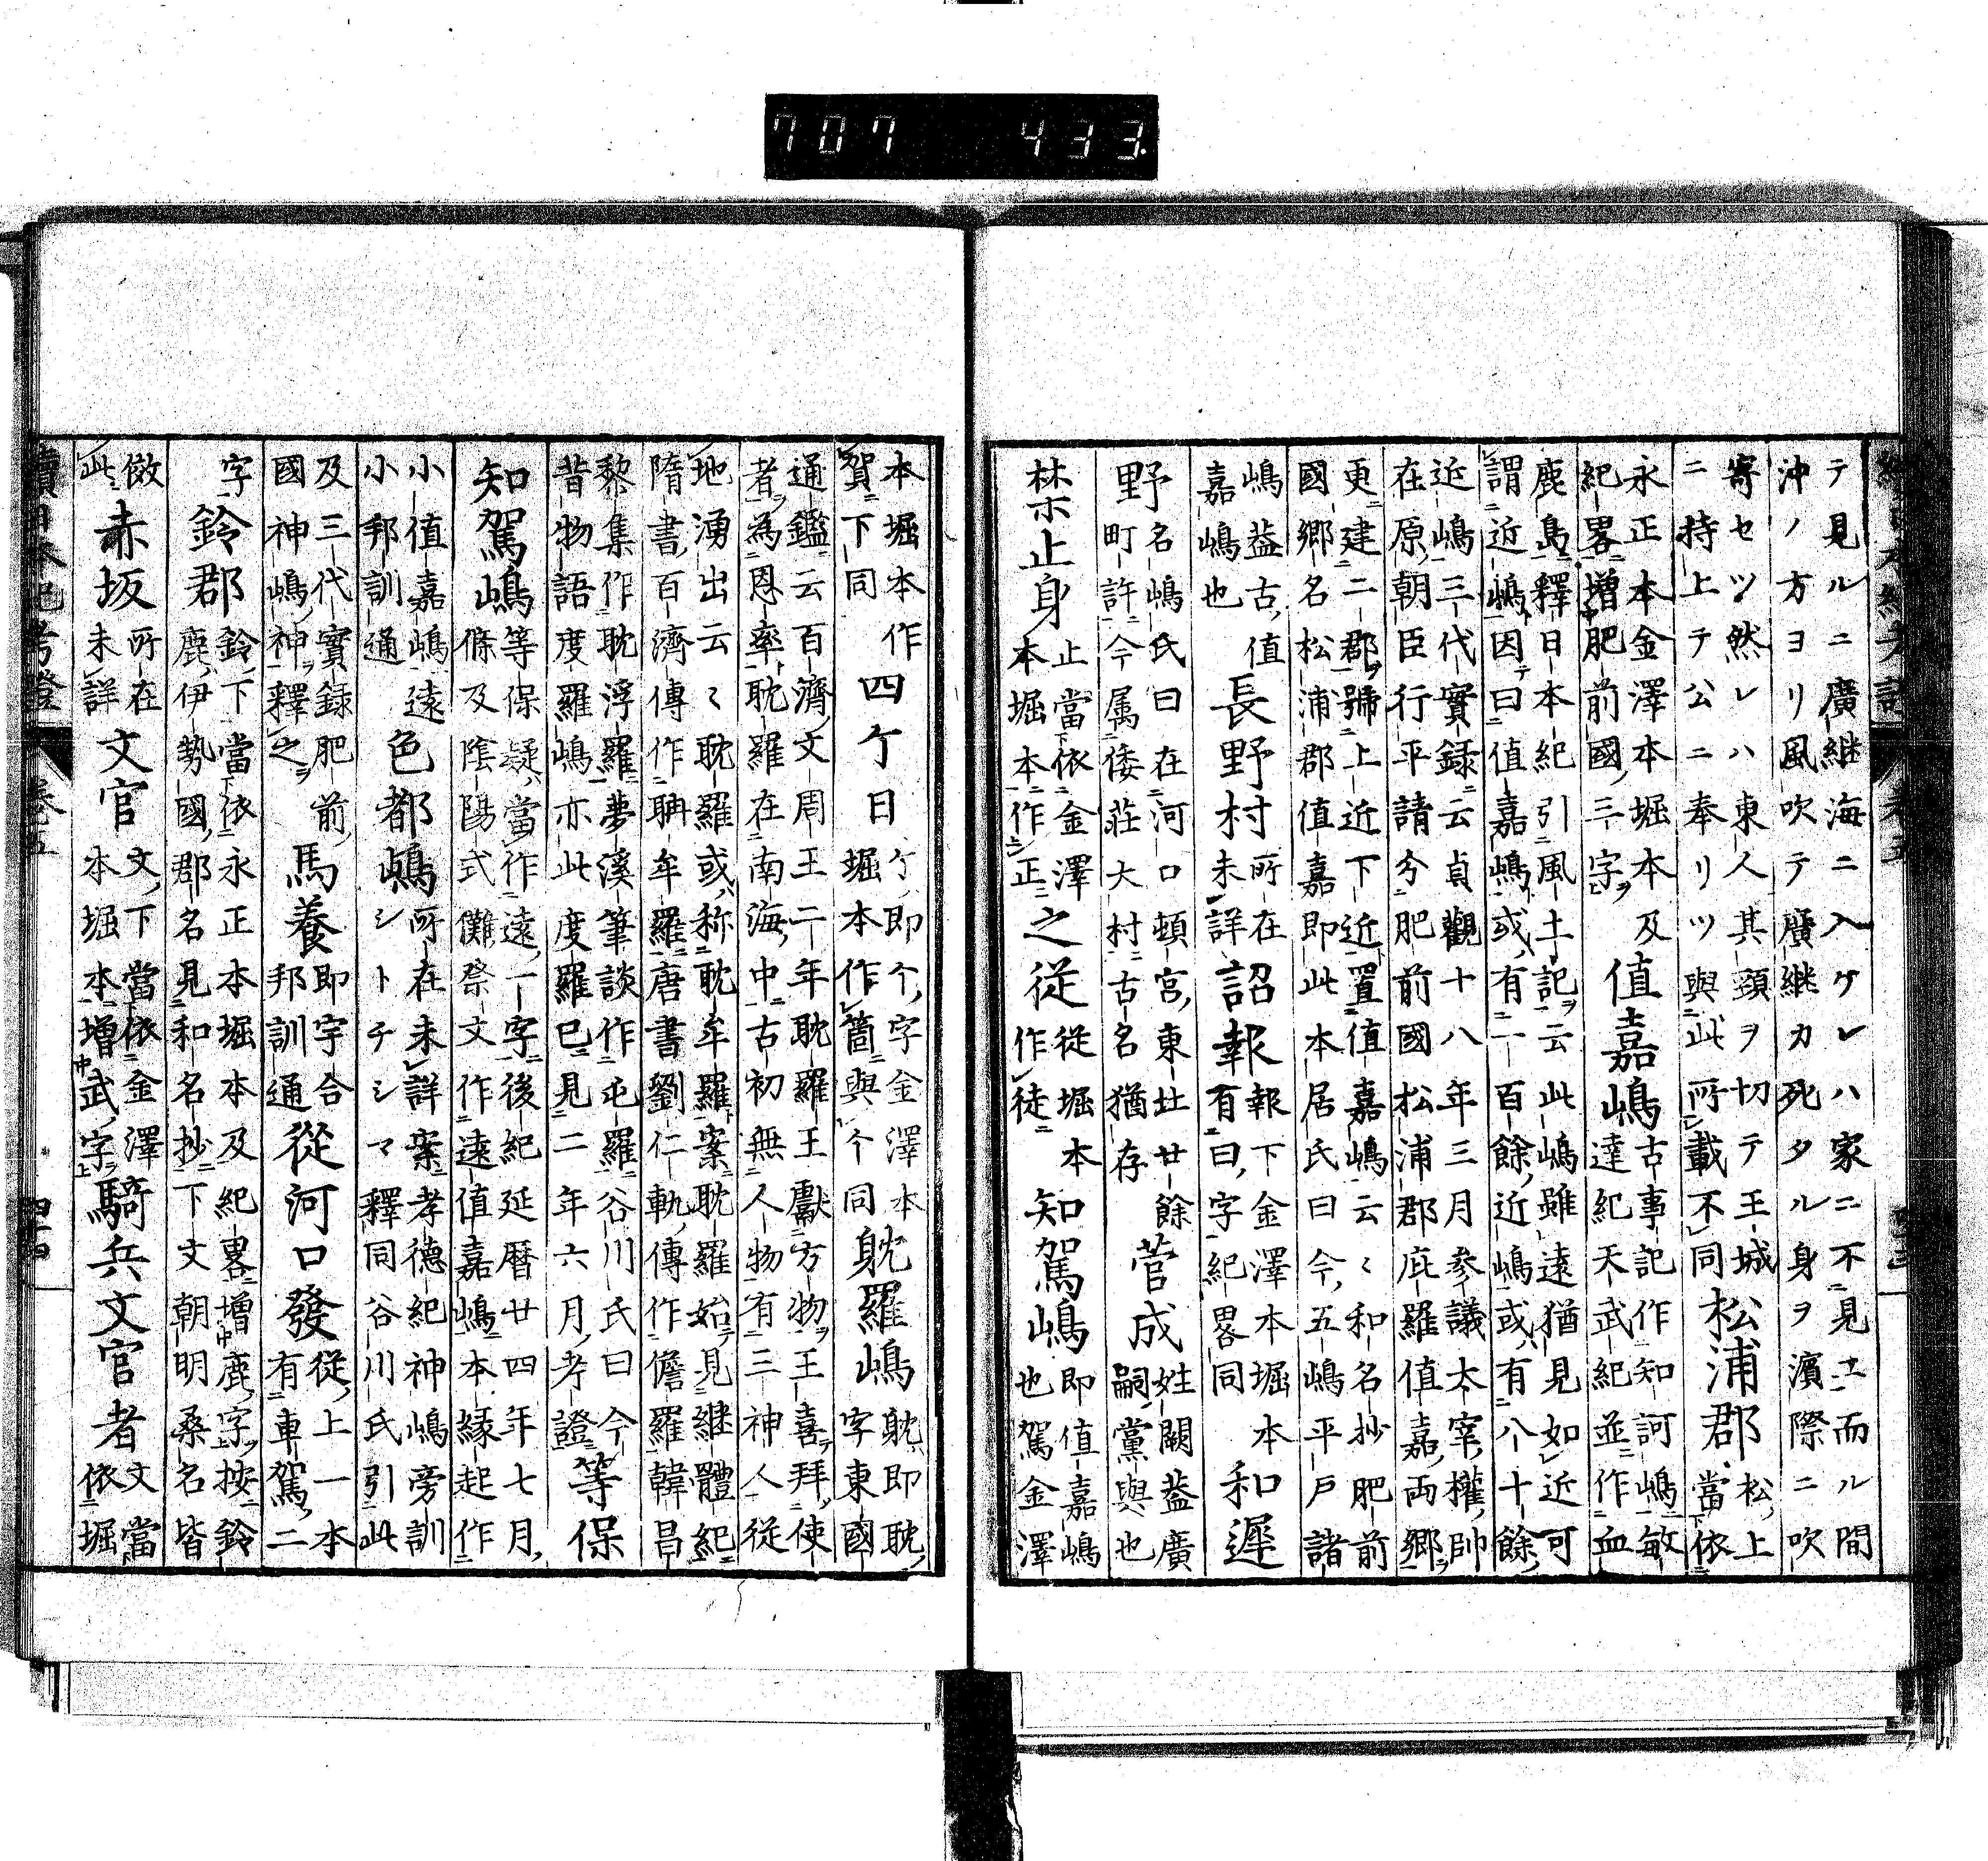 續日本紀考證 卷五
テ見ルニ廣継海ニ入ケレハ家ニ不見エ而ル間
沖ノ方ヨリ風吹テ廣継カ死タル身ヲ濱際ニ吹
寄セツ然レハ東人其頸ヲ切テ王城
ニ持上テ公ニ奉リツ與此所載不同
松浦郡
松上
當依
永正本金澤本堀本及
紀畧増肥前國三字
値嘉嶋
古事記作知訶嶋敏
達紀天武紀並作血
鹿島釋日本紀引風土記云此嶋雖遠猶見如近可
謂近嶋因曰値嘉嶋或有一百餘近嶋或有八十餘
近嶋三代實録云貞觀十八年三月参議太宰權帥
在原朝臣行平請分肥前國松浦郡庇羅値嘉両郷
更建二郡號上近下近置値嘉嶋云〻和名抄肥前
國郷名松浦郡値嘉即此本居氏曰今五嶋平戸諸
嶋蓋古値
嘉嶋也
長野村
所在
未詳
詔報
報下金澤本堀本
有曰字紀畧同
和遲
野
名嶋氏曰在河口頓宮東北廿餘
町許今属倭荘大村古名猶存
菅成
姓闕蓋廣
嗣黨與也
禁止身
止當依金澤
本堀本本作正
之従
従堀本
作徒
知駕嶋
即値嘉嶋
也駕金澤
本堀本作
賀下同
四ケ日
ケ即个字金澤本
堀本作箇與个同
躭羅嶋
躭即耽
字東國
通鑑云百濟文周王二年耽羅王獻方物王喜拜使
者為恩率耽羅在南海中古初無人物有三神人従
地湧出云〻耽羅或称耽牟羅案耽羅始見継體紀
隋書百濟傳作聃牟羅唐書劉仁軌傳作儋羅韓昌
黎集作耽浮羅夢溪筆談作屯羅谷川氏曰今
昔物語度羅嶋亦此度羅已見二年六月考證
等保
知駕嶋
等保疑當作遠一字後紀延暦廿四年七月
條及陰陽式儺祭文作遠値嘉嶋本縁起作
小値嘉嶋遠
小邦訓通
色都嶋
所在未詳案孝德紀神嶋旁訓
シトチシマ釋同谷川氏引此
及三代實録肥前
國神嶋神釋之
馬養
即宇合
邦訓通
従河口發
従上一本
有車駕二
字
鈴郡
鈴下當依永正本堀本及紀畧増鹿字按鈴
鹿伊勢國郡名見和名抄下文朝明桑名皆
倣
此
赤坂
所在
未詳
文官
文下當依金澤
本堀本増武字
騎兵文官者
文當
依堀
續日本紀考證 卷五 四十四
707 433